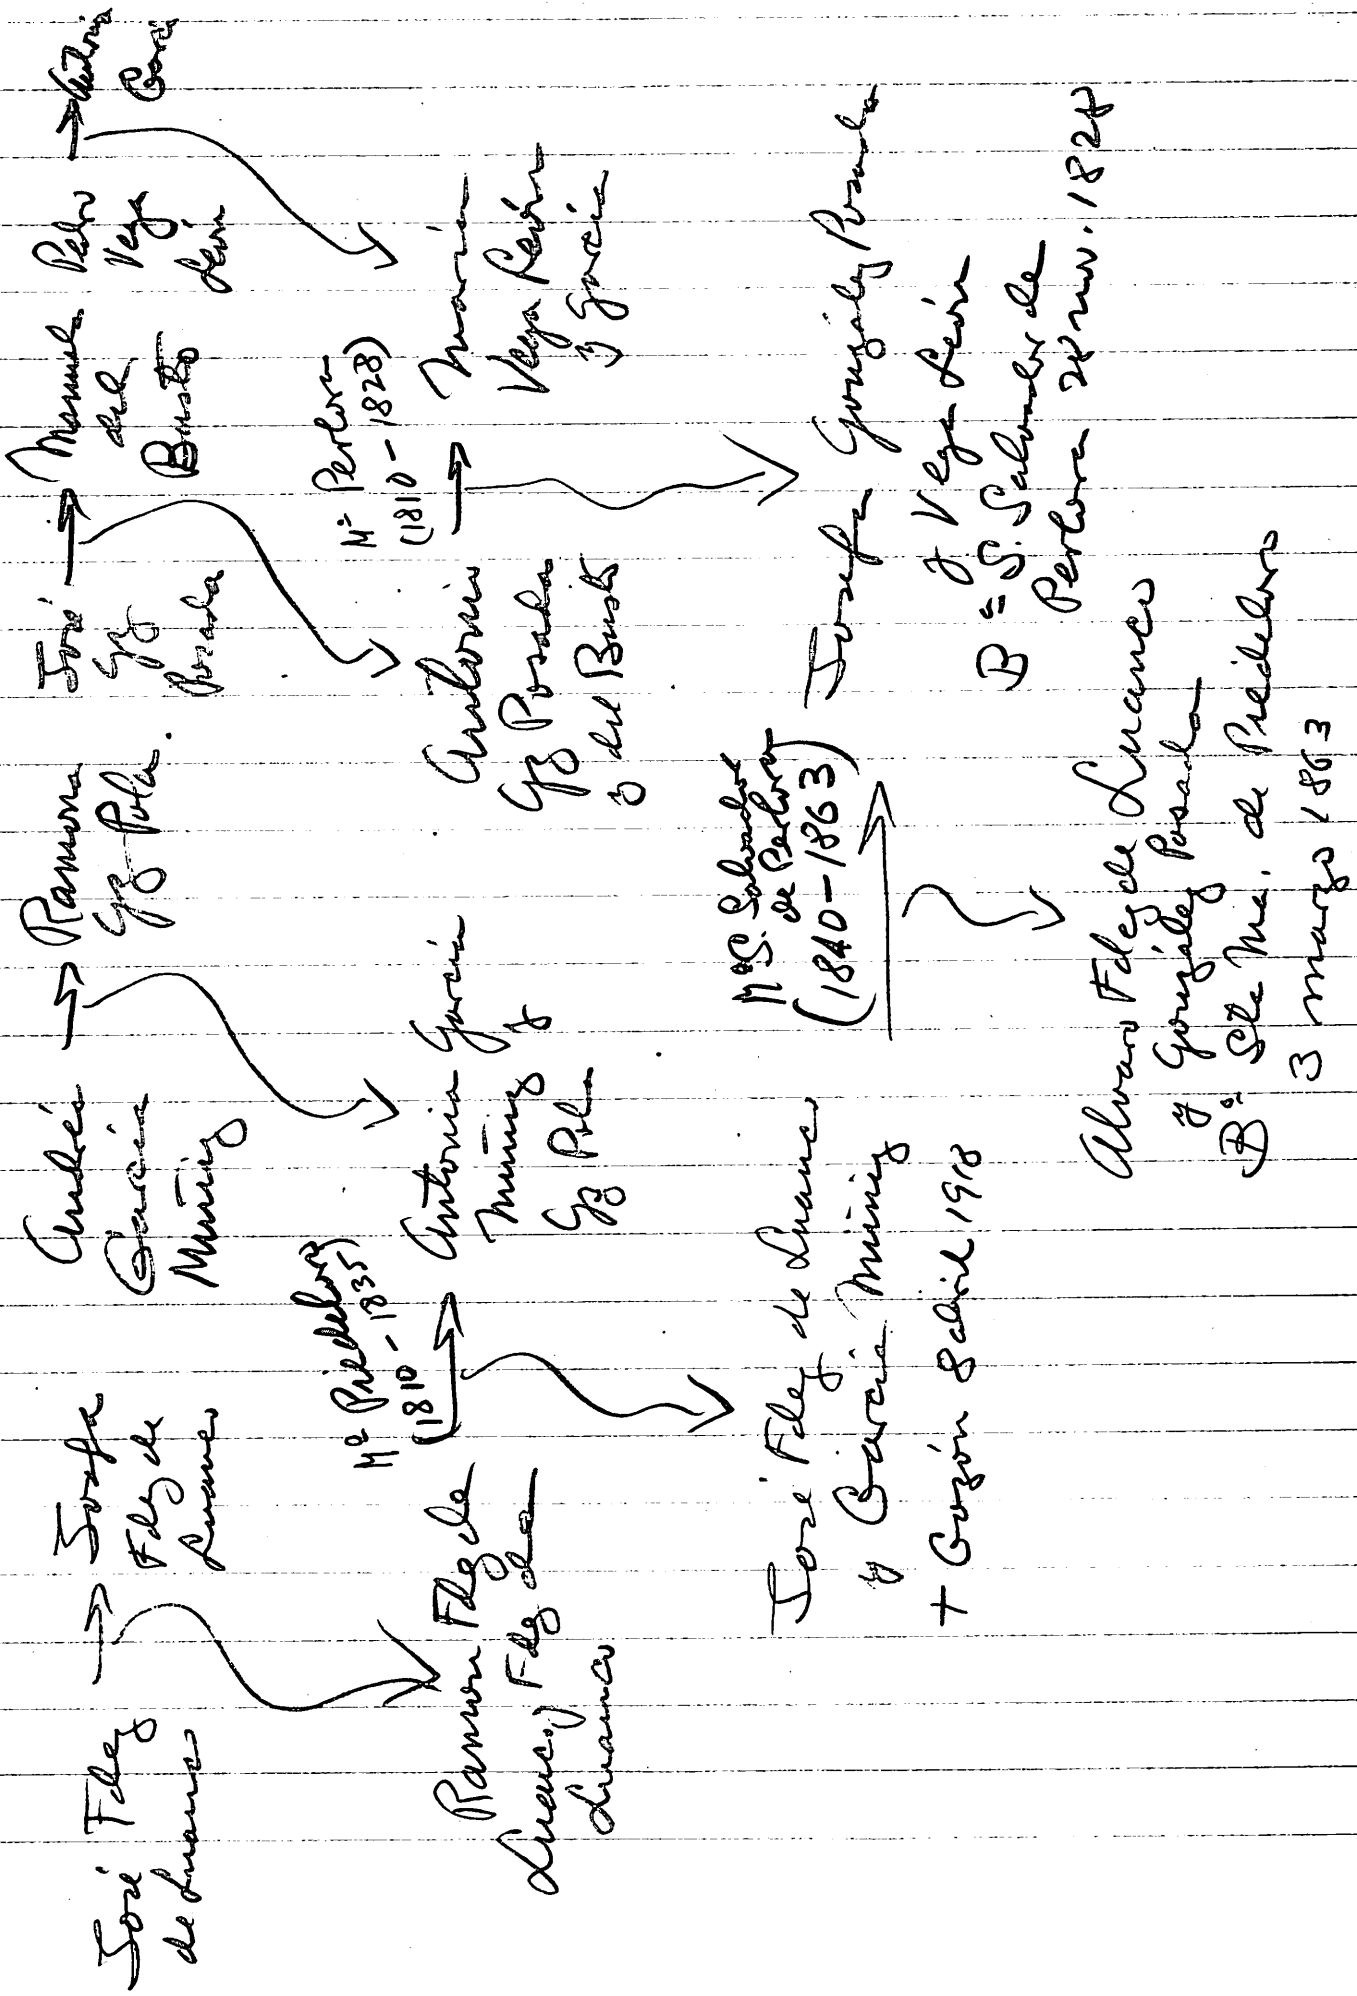 José Fdez
de Luanco
Josefa
Fdez de
Luanco
Andrés
García
Muñiz
Ramona
Gz Pola.
José
Gz
Posada
Manuela
del
Busto
Pedro
Vega
León
Antonia
García
Ramón Fdez de
Luanco y Fdez de
Luanco
Mº Piedeloro
(1810-1835)
Antonia García
Muñiz y
Gz Pola
Antonio
Gz Posada
y del Busto
Mº Perlora
(1810-1828)
María
Vega León
y García
José Fdez de Luanco
y García Muñiz
+ Gozón 8 abril 1918
Mº S. Salvador
de Perlora
(1840-1863)
Josefa González Posada
y Vega León
Bº S. Salvador de
Perlora 28 nov. 1828
Alvaro Fdez de Luanco
y González Posada
Bº Sta Ma. de Piedeloro
3 marzo 1863